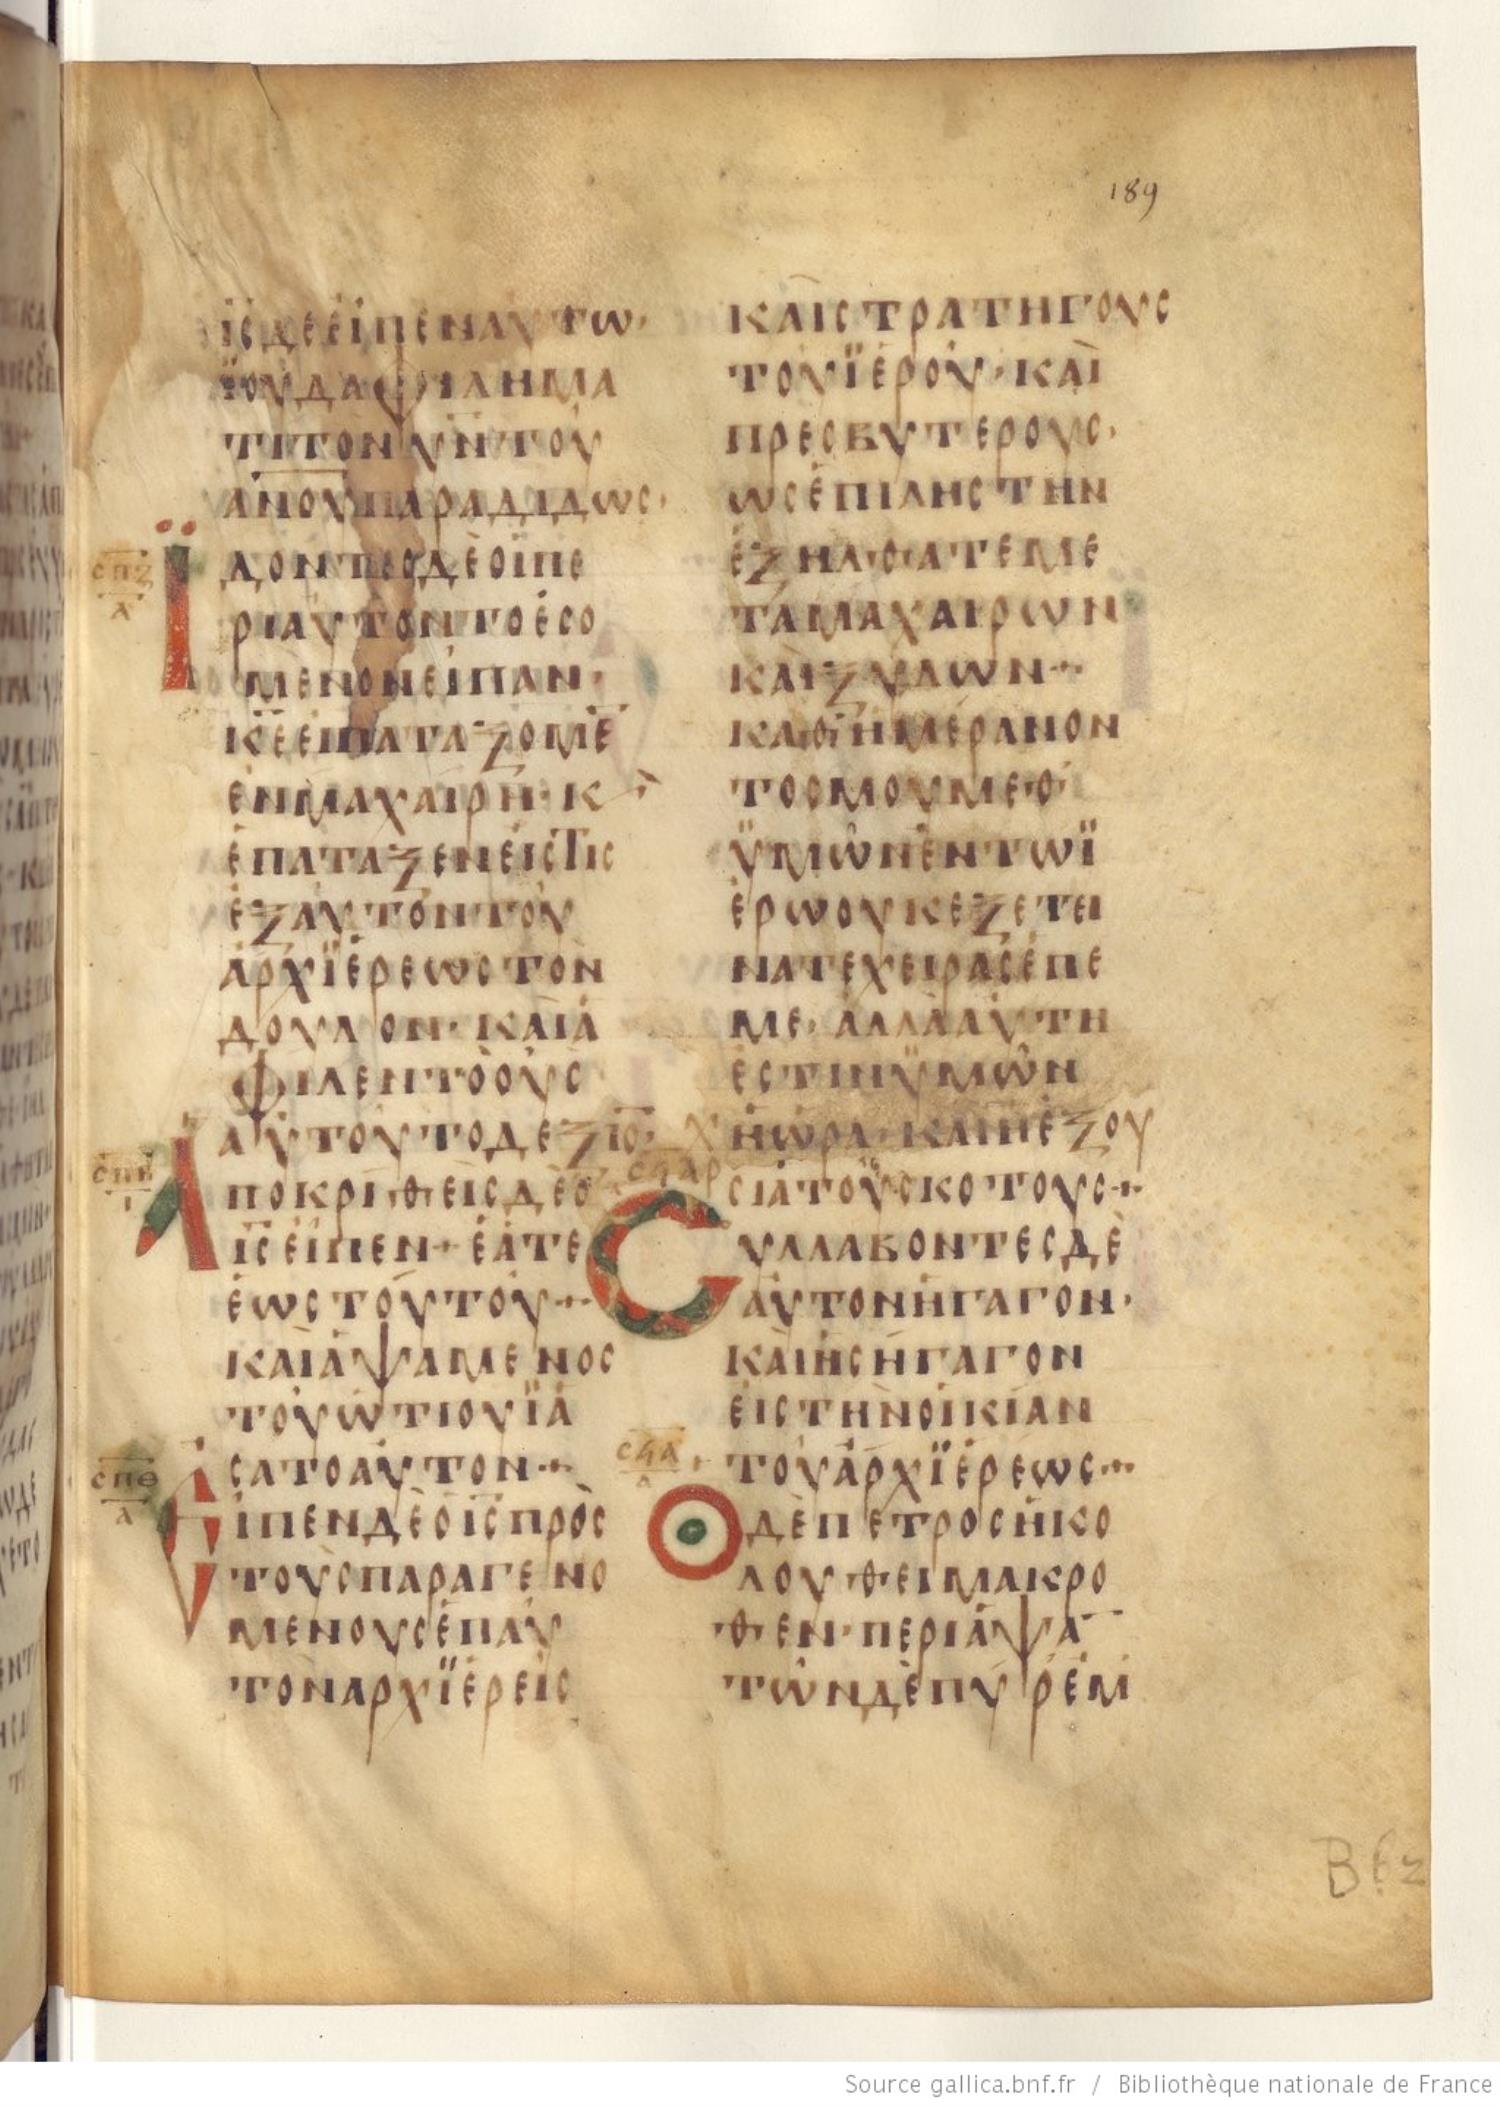 189
ῙC ΔΕ ΕΙΠΕΝ ΑΥΤΩ·
ΪΟΥΔΑ ΦΙΛΗΜΑ
ΤΙ ΤΟΝ ῩΝ ΤΟΥ
ΑΝΟΥ ΠΑΡΑΔΙΔΩC·
ϹΠΖ
Α
ΪΔΟΝΤΕC ΔΕ ΟΙ ΠΕ
ΡΙ ΑΥΤΟΝ ΤΟ ΕCΟ
ΜΕΝΟΝ ΕΙΠΑΝ·
Κ̄Ε ΕΙ ΠΑΤΑΞΟΜΕ̄
ΕΝ ΜΑΧΑΙΡΗ· Κ
ΕΠΑΤΑΞΕΝ ΕΙC ΤΙC
ΕΞ ΑΥΤΟΝ ΤΟΥ
ΑΡΧΪΕΡΕΩC ΤΟΝ
ΔΟΥΛΟΝ· ΚΑΙ Α
ΦΙΛΕΝ ΤΟ ΟΥC
ΑΥΤΟΥ ΤΟ ΔΕΞΙΟ̄·
ϹΠΗ
Ι
ΑΠΟΚΡΙΘΕΙC ΔΕ Ο
ῙC ΕΙΠΕΝ+ ΕΑΤΕ
ΕΩC ΤΟΥΤΟΥ+
ΚΑΙ ΑΨΑΜΕΝΟC
ΤΟΥ ΩΤΙΟΥ ΪΑ
CΑΤΟ ΑΥΤΟΝ+
ϹΠΘ
Α
ΕΙΠΕΝ ΔΕ Ο ῙC ΠΡΟC
ΤΟΥC ΠΑΡΑΓΕΝΟ
ΜΕΝΟΥC ΕΠ ΑΥ
ΤΟΝ ΑΡΧΪΕΡΕΙC
ΚΑΙ CΤΡΑΤΗΓΟΥC
ΤΟΥ ΪΕΡΟΥ· ΚΑΙ
ΠΡΕCΒΥΤΕΡΟΥC·
ΩC ΕΠΙ ΛΗCΤΗΝ
ΕΞΗΛΘΑΤΕ ΜΕ
ΤΑ ΜΑΧΑΙΡΩΝ
ΚΑΙ ΞΥΛΩΝ+
ΚΑΘ ΗΜΕΡΑΝ ΟΝ
ΤΟC ΜΟΥ ΜΕΘ
ΫΜΩΝ ΕΝ ΤΩ Ϊ
ΕΡΩ ΟΥΚ ΕΞΕΤΕΙ
ΝΑΤΕ ΧΕΙΡΑC ΕΠ Ε
ΜΕ· ΑΛΛΑ ΑΥΤΗ
ΕCΤΙΝ ΫΜΩΝ
Η ΩΡΑ· ΚΑΙ Η ΕΞΟΥ
CΙΑ ΤΟΥ CΚΟΤΟΥC+
CΥΛΛΑΒΟΝΤΕC ΔΕ
ΑΥΤΟΝ ΗΓΑΓΟΝ·
ΚΑΙ ΗCΗΓΑΓΟΝ
ΕΙC ΤΗΝ ΟΙΚΙΑΝ
ΤΟΥ ΑΡΧΪΕΡΕΩC+
ϹϤΑ
Α
Ο ΔΕ ΠΕΤΡΟC ΗΚΟ
ΛΟΥΘΕΙ ΜΑΚΡΟ
ΘΕΝ· ΠΕΡΙΑΨᾹ
ΤΩΝ ΔΕ ΠΥΡ ΕΜ
Source gallica.bnf.fr / Bibliothèque nationale de France